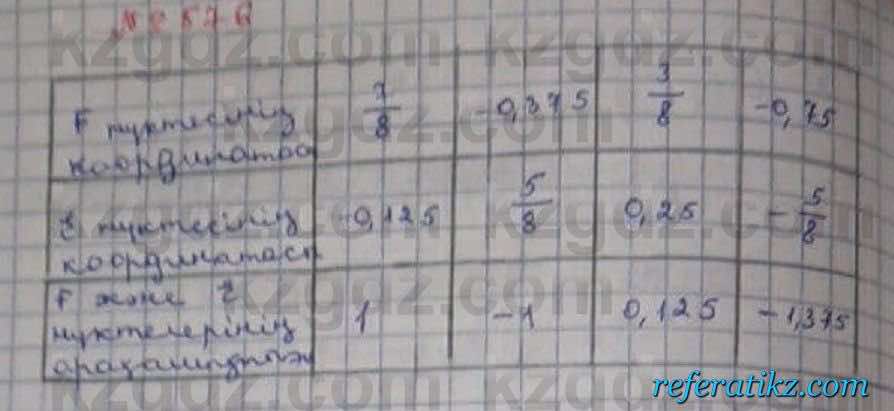 № 876
F нүктесінің 7/8 -0,375 3/8 -0,75
координатасы
E нүктесінің -0,125 5/8 0,25 - 5/8
координатасы
F және E
нүктелерінің 1 -1 0,125 -1,375
арақашықтығы
kzgdz.com
referatikz.com